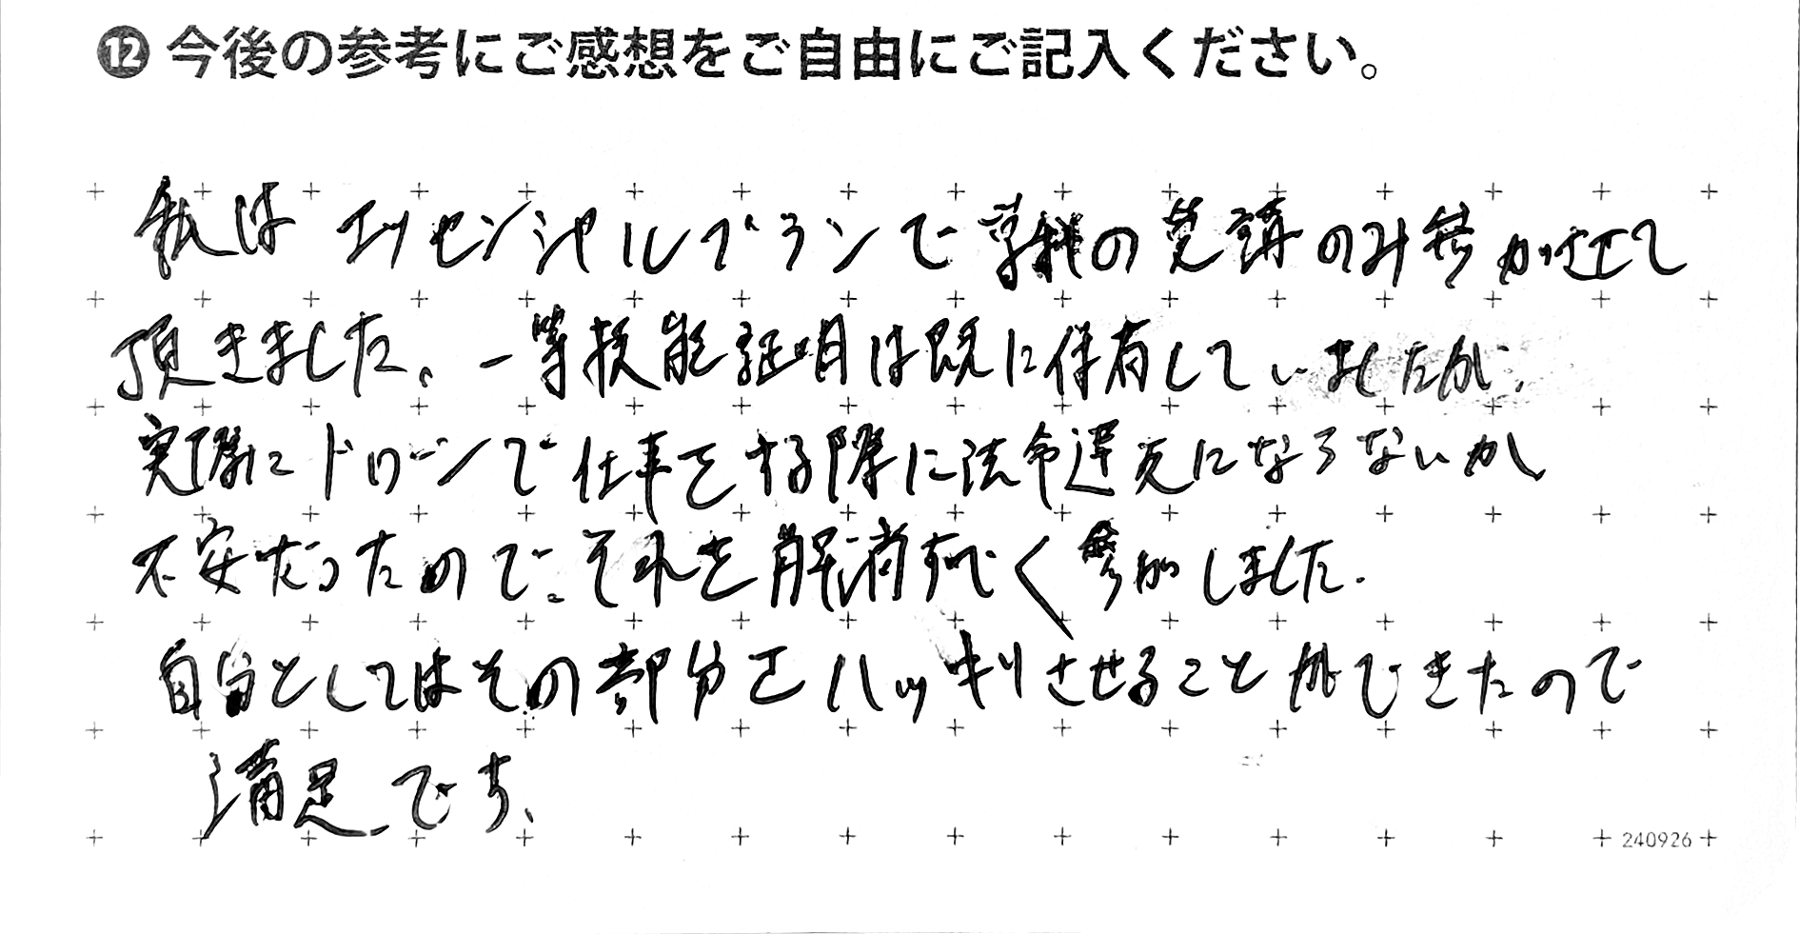 ⓬ 今後の参考にご感想をご自由にご記入ください。
私はエッセンシャルプランで学科の受講のみ参加させて
頂きました。一等技能証明は既に保有していましたが、
実際にドローンで仕事をする際に法令違反にならないか
不安だったので、それを解消すべく参加しました。
自分としてはその部分をハッキリさせることができたので
満足です。
240926